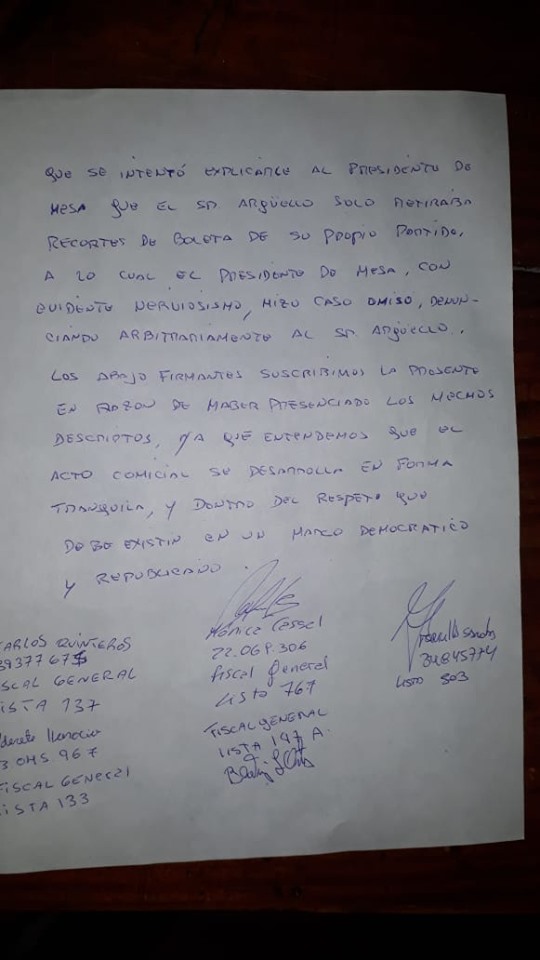 QUE SE INTENTÓ EXPLICARLE AL PRESIDENTE DE
MESA QUE EL SR. ARGÜELLO SOLO RETIRABA
RECORTES DE BOLETA DE SU PROPIO PARTIDO,
A LO CUAL EL PRESIDENTE DE MESA, CON
EVIDENTE NERVIOSISMO, HIZO CASO OMISO, DENUN-
CIANDO ARBITRARIAMENTE AL SR. ARGÜELLO.
LOS ABAJO FIRMANTES SUSCRIBIMOS LA PRESENTE
EN RAZON DE HABER PRESENCIADO LOS HECHOS
DESCRIPTOS, YA QUE ENTENDEMOS QUE EL
ACTO COMICIAL SE DESARROLLA EN FORMA
TRANQUILA, Y DENTRO DEL RESPETO QUE
DEBE EXISTIR EN UN MARCO DEMOCRATICO
Y REPUBLICANO.
CARLOS QUINTEROS
FISCAL GENERAL
LISTA 137
Ignacio
FISCAL GENERAL
LISTA 133
Mónica Cassel
22.069.306
fiscal general
Lista 767
FISCAL GENERAL
LISTA 197 A.
LISTA 503